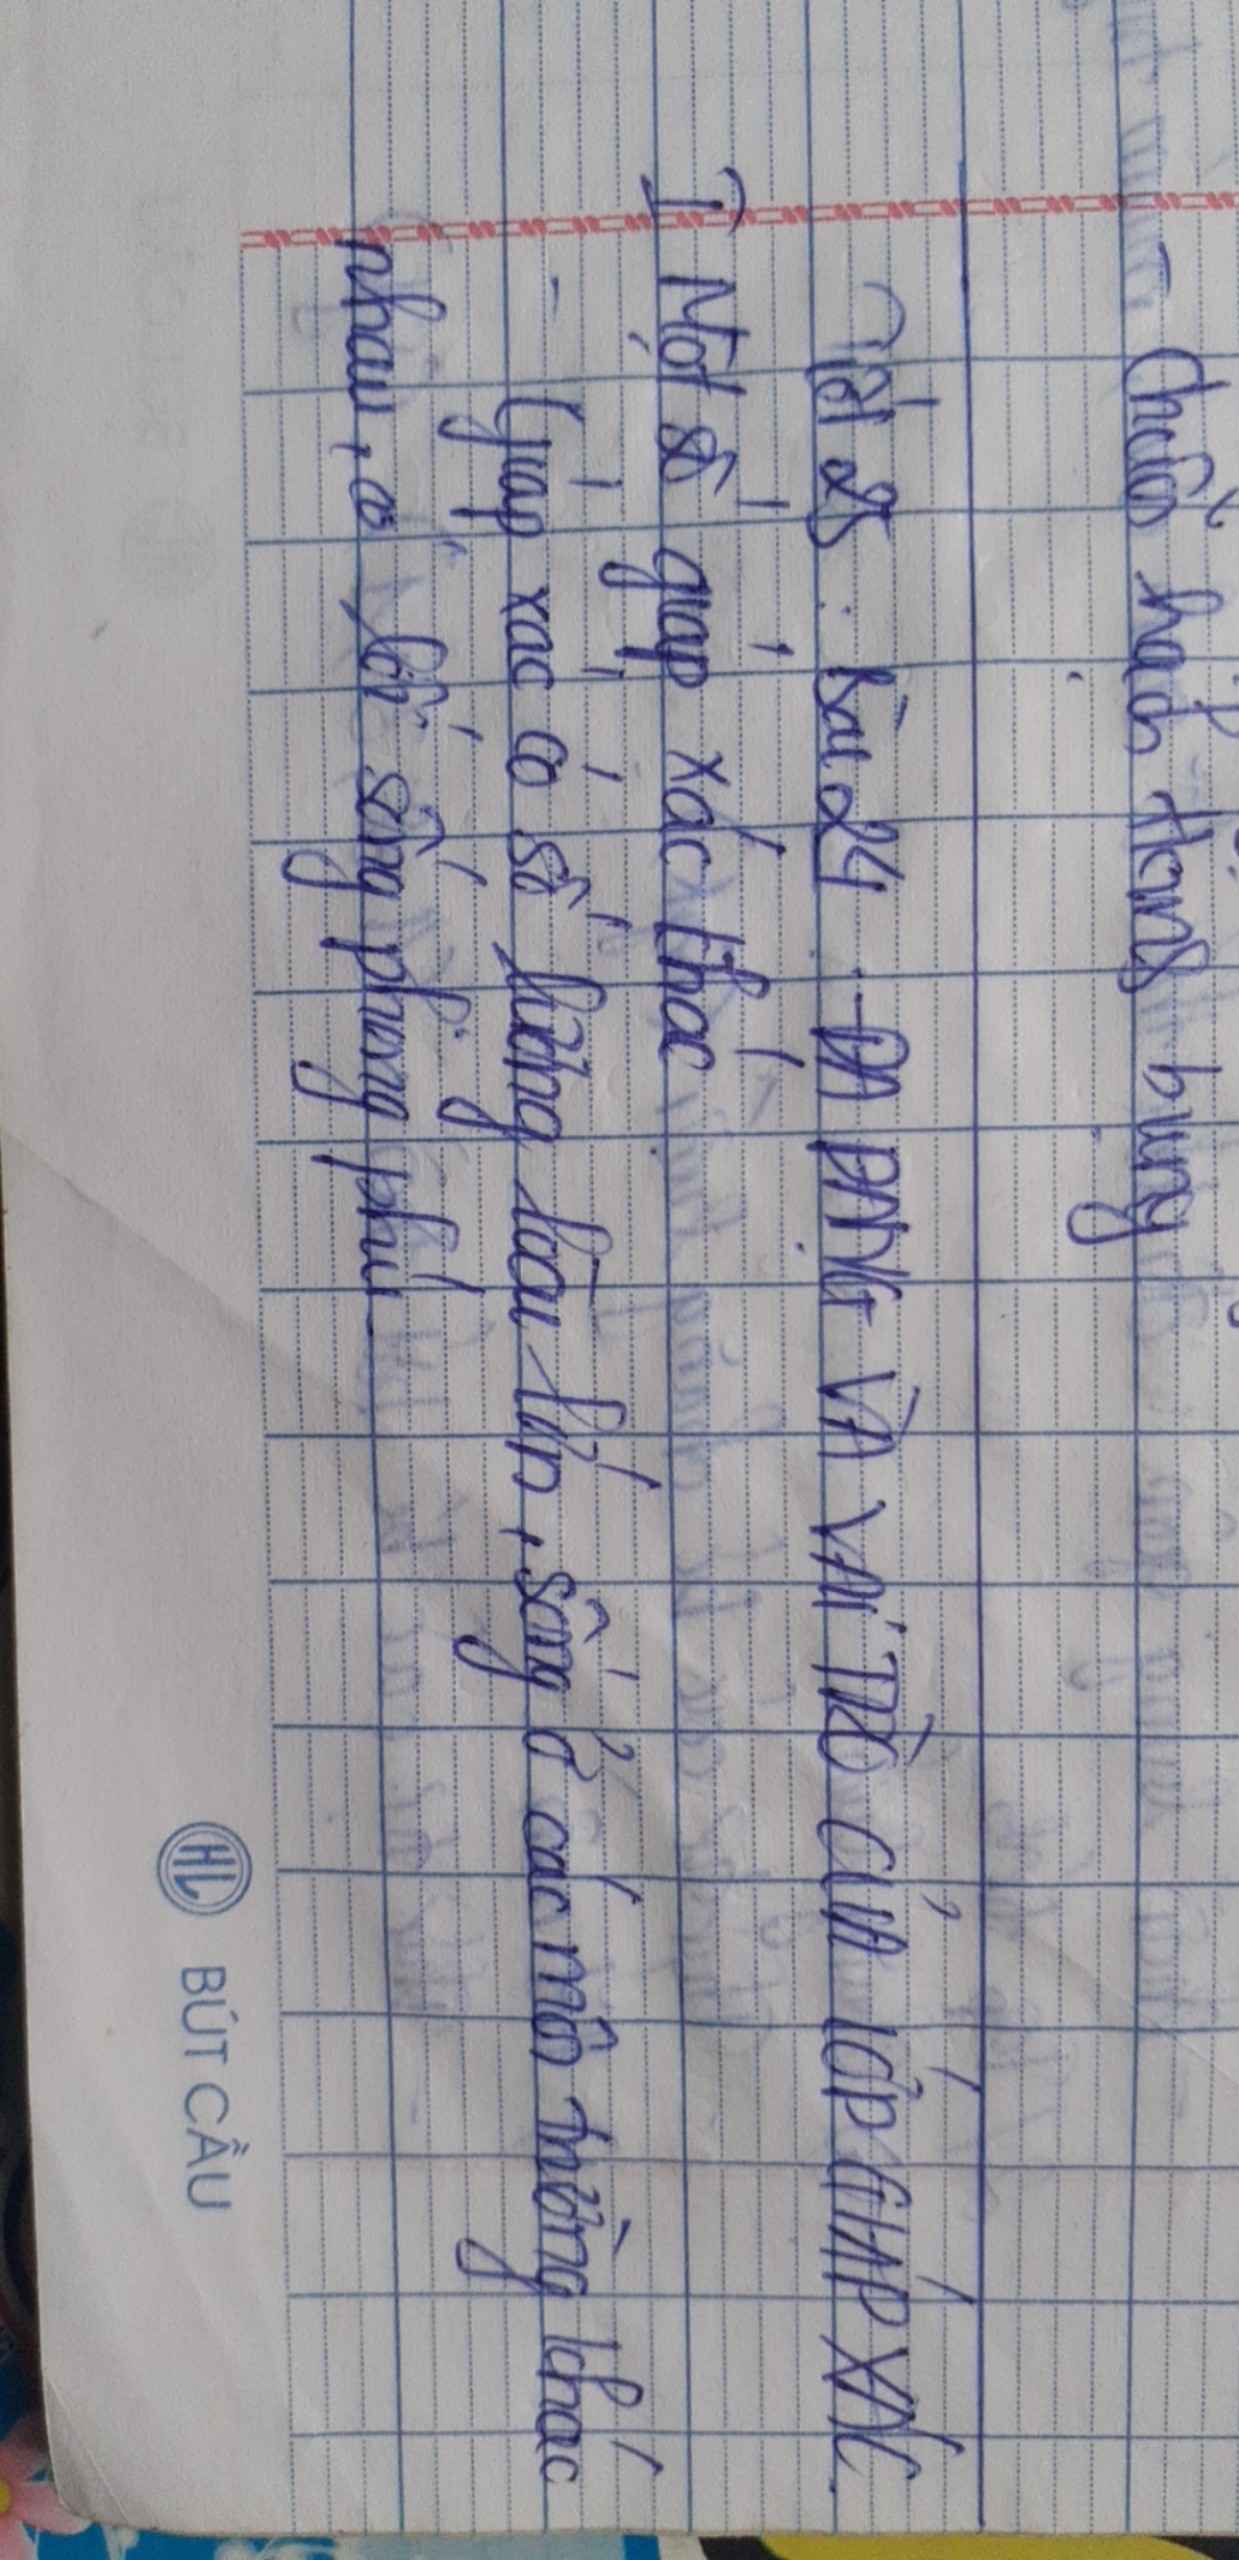 - Chuỗi hạch thần kinh bụng
Tiết 25: Bài 24 - ĐA DẠNG VÀ VAI TRÒ CỦA LỚP GIÁP XÁC.
I Một số giáp xác khác
- Giáp xác có số lượng loài lớn, sống ở các môi trường khác
nhau, có lối sống phong phú.
HL BÚT CẦU